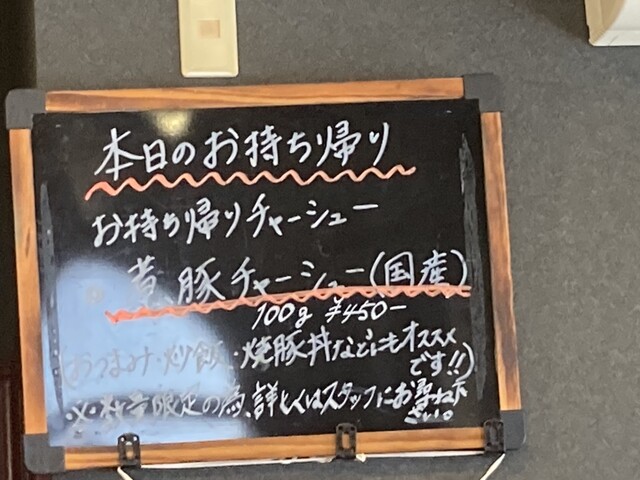 本日のお持ち帰り
お持ち帰りチャーシュー
豚チャーシュー(国産)
100g ¥450-
(おつまみ・炒飯・焼豚丼などにもオススメ
です!!)
※数量限定の為、詳しくはスタッフにお尋ね下
さい。